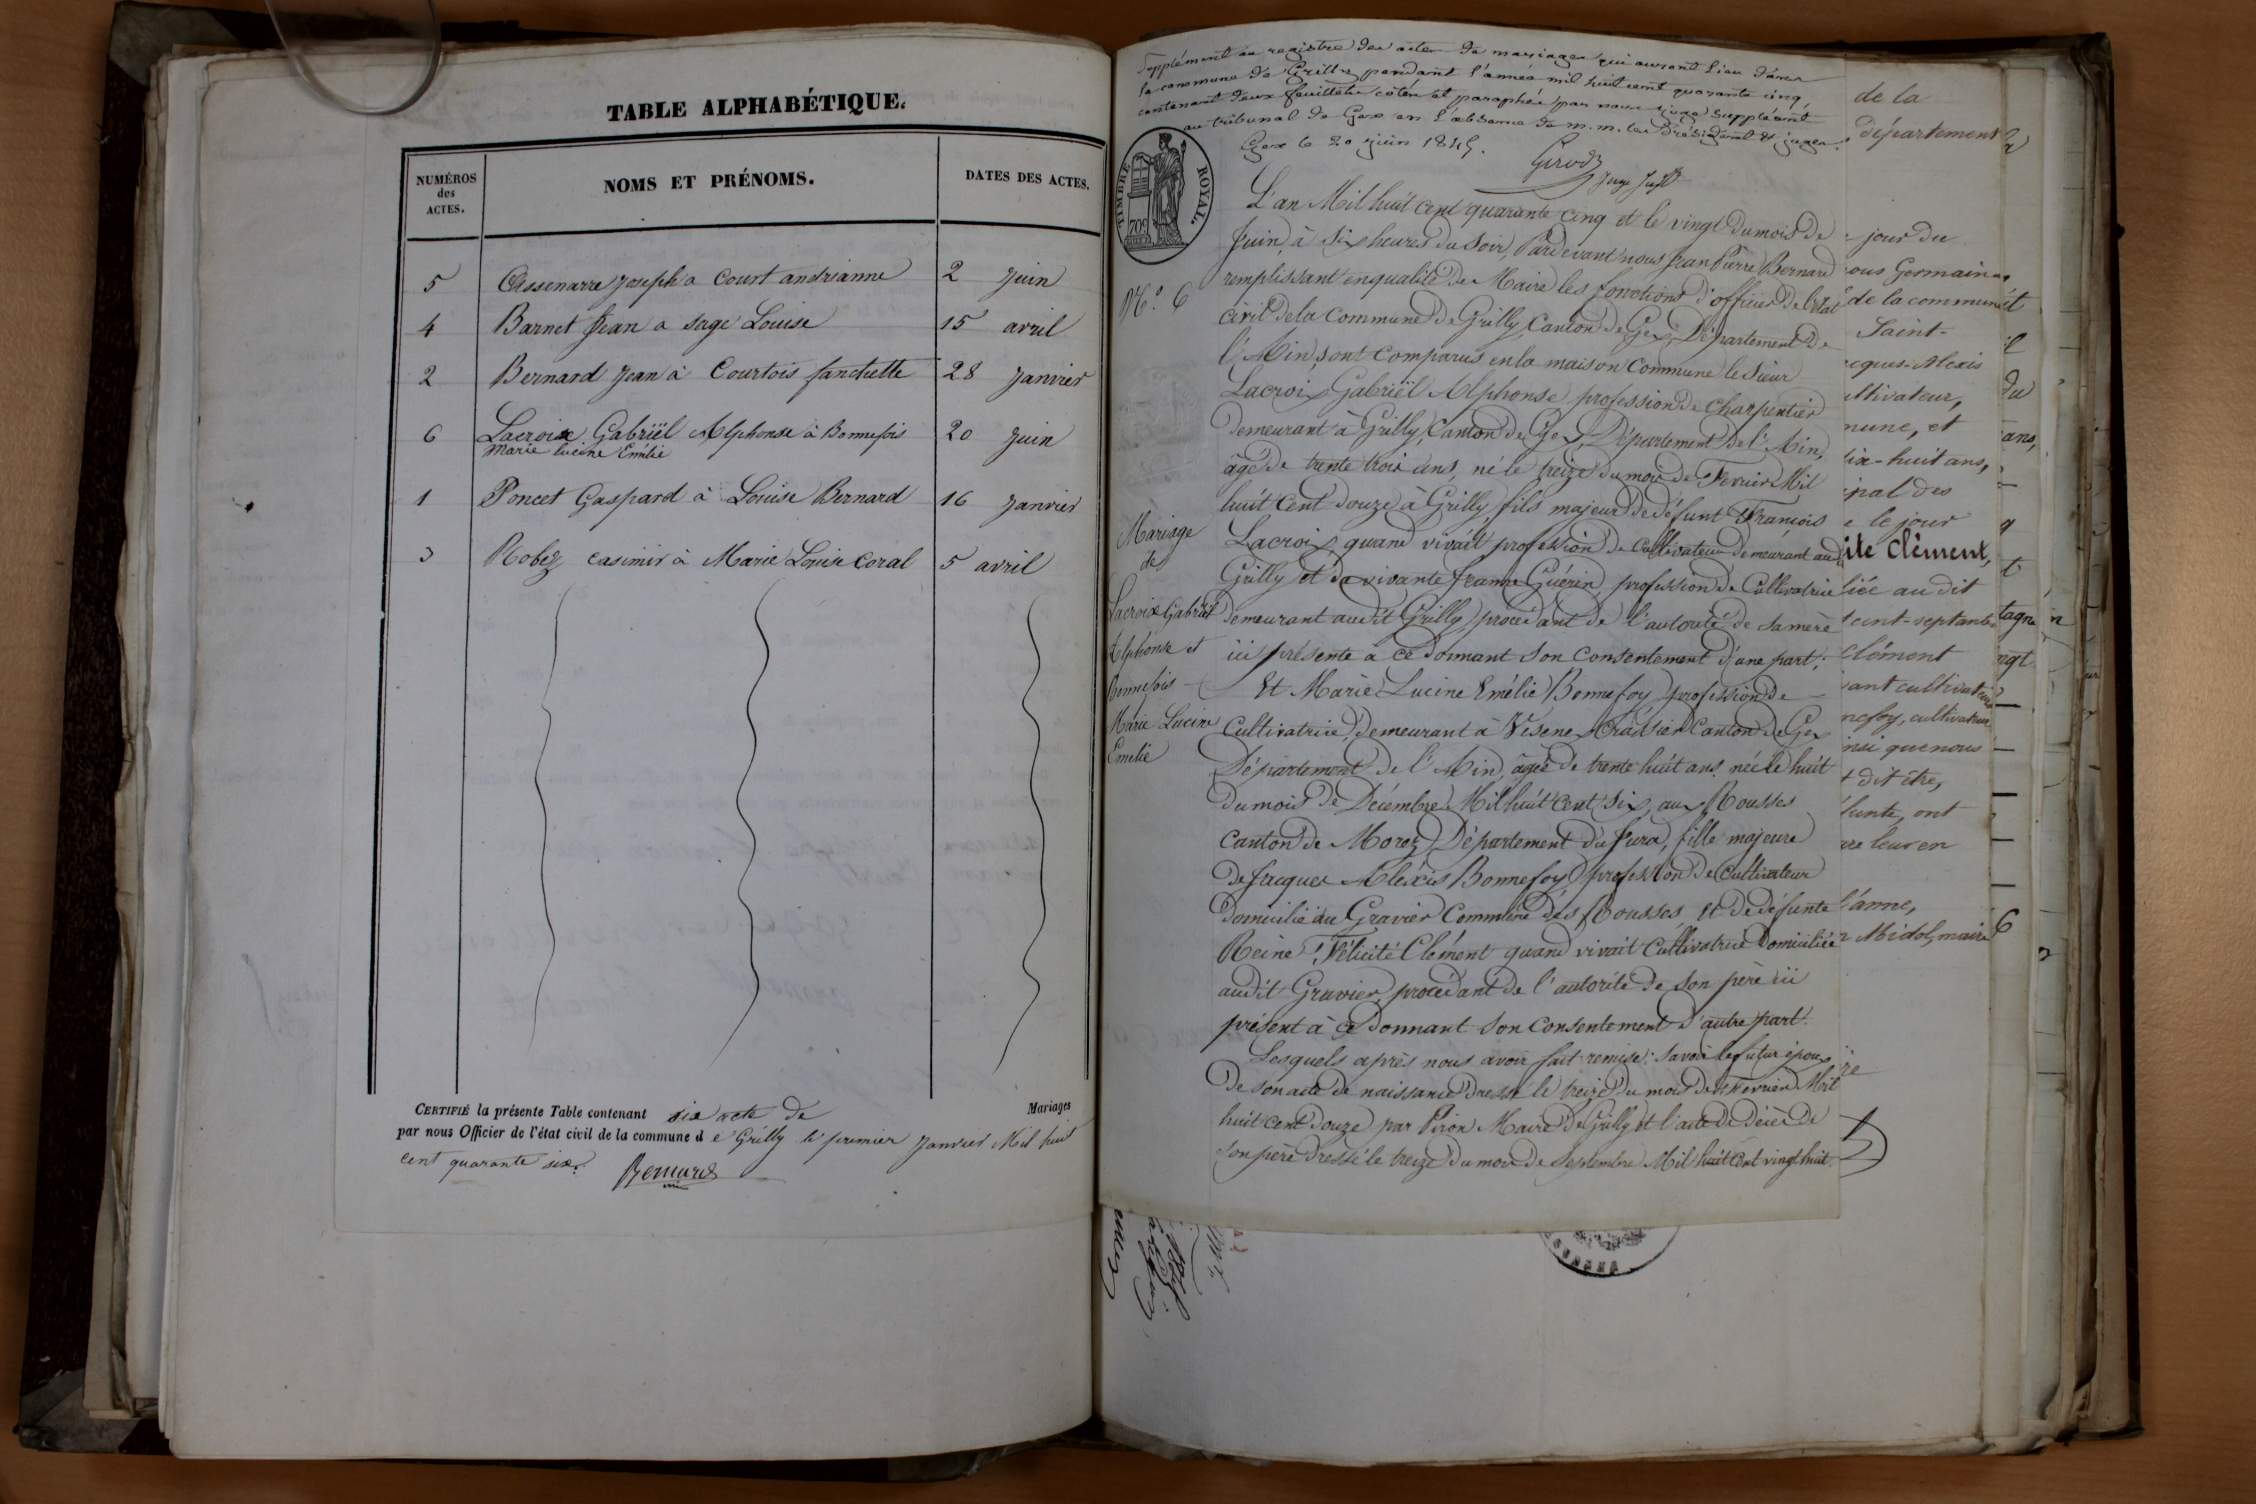 TABLE ALPHABÉTIQUE.
NUMÉROS
des
ACTES.
NOMS ET PRÉNOMS.
DATES DES ACTES.
5 Assenarre Joseph a Court andrianne 2 Juin
4 Barnet Jean a sage Louise 15 avril
2 Bernard Jean à Courtois fanchette 28 Janvier
6 Lacroix Gabriël Alphonse à Bonnefois 20 Juin
Marie Lucine Emélie
1 Poncet Gaspard à Louise Bernard 16 Janvier
3 Robez casimir à Marie Louise Coral 5 avril
CERTIFIÉ la présente Table contenant six acte de Mariages
par nous Officier de l'état civil de la commune d e Grilly le premier Janvier Mil huit
cent quarante six.
Bernard
Supplément au registre des actes de mariages qui auront lieu dans
la commune de Grilly pendant l'année mil huit cent quarante cinq
contenant deux feuillets cotés et paraphés par nous juge suppléant
au tribunal de Gex en l'absence de m.m. les Président & juges.
Gex le 20 juin 1845.
Girod
Juge Supt
TIMBRE ROYAL.
70c
L'an Mil huit cent quarante cinq et le vingt du mois de
Juin, à six heures du soir, Pardevant nous Jean Pierre Bernard
remplissant en qualité de Maire les fonctions d'officier de l'état
N.o 6
civil de la Commune de Grilly, Canton de Gex, Département de
l'Ain, sont comparus en la maison Commune le Sieur
Lacroix Gabriël Alphonse profession de Charpentier
demeurant à Grilly, Canton de Gex, Département de l'Ain,
âgé de trente trois ans, né le treize du mois de Fevrier Mil
huit cent douze à Grilly, fils majeur de défunt François
Lacroix, quand vivait profession de Cultivateur demeurant audit
Grilly et de vivante Jeanne Guérin, profession de Cultivatrice
demeurant audit Grilly, procédant de l'autorité de sa mère
ici présente à ce donnant son consentement d'une part;
Mariage
de
Lacroix Gabriël
Alphonse et
Bonnefois
Marie Lucine
Emélie
Et Marie Lucine Emélie Bonnefoy profession de
Cultivatrice, demeurant à Vesenex Crassier Canton de Gex
Département de l'Ain, âgée de trente huit ans, née le huit
du mois de Décembre Mil huit cent six, aux Rousses
Canton de Morez, Département du Jura, fille majeure
de Jacques Aléxis Bonnefoy profession de Cultivateur
domicilié au Gravier Commune des Rousses, et de défunte
Reine Félicité Clément quand vivait Cultivatrice domiciliée
audit Gravier, procédant de l'autorité de son père ici
présent à ce donnant son consentement d'autre part.
Lesquels après nous avoir fait remise: savoir le futur époux
de son acte de naissance dressé le treize du mois de Fevrier Mil
huit cent douze par Piron Maire de Grilly et l'acte de décès de
son père dressé le treize du mois de Septembre Mil huit cent vingt huit.
de la
département
jour du
ous Germain
de la commune
Saint-
cques-Alexis
ltivateur,
mune, et
dix-huit ans,
ipal des
le jour
ite Clément,
liée au dit
cent-septante
Clément
ant cultivateur
nefoy, cultivateur
nsi que nous
t dit être,
funte, ont
ure leur en
l'anne,
Midol, maire
du
ans,
tagne
ngt
6